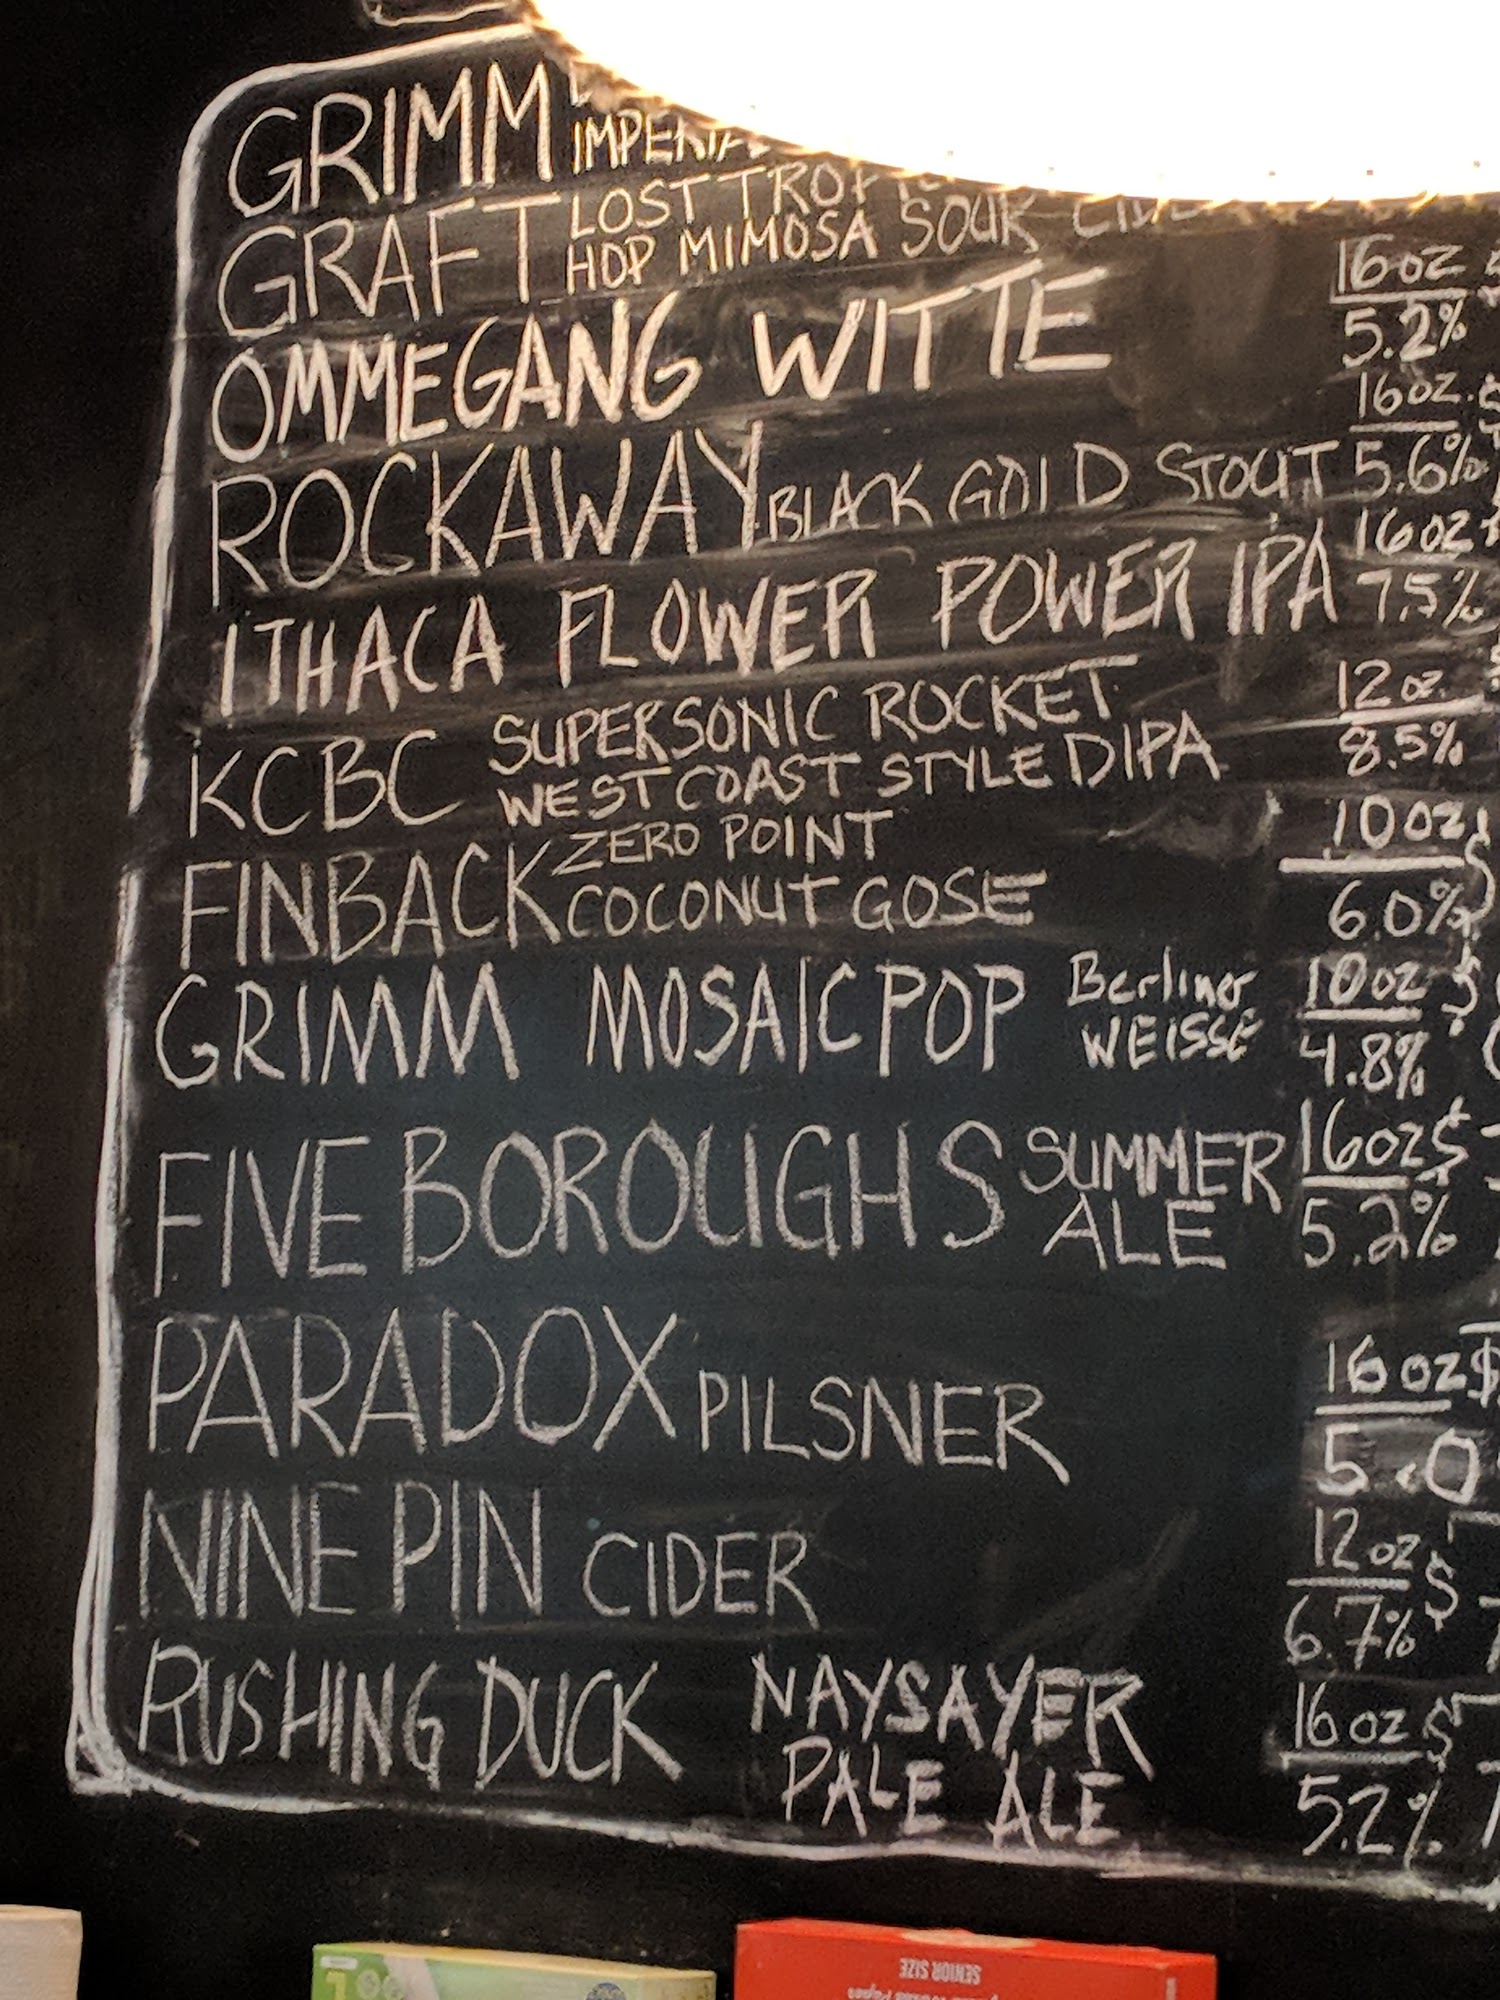 GRIMM
GRAFT LOST
HOP MIMOSA SOUR
OMMEGANG WITTE 16oz
5.2%
ROCKAWAY BLACK GOLD STOUT 16oz.
5.6%
ITHACA FLOWER POWER IPA 16oz
7.5%
KCBC SUPERSONIC ROCKET 12oz.
WEST COAST STYLE DIPA 8.5%
FINBACK ZERO POINT 10oz $
COCONUT GOSE 6.0%
GRIMM MOSAIC POP Berliner 10oz $
WEISSE 4.8%
FIVE BOROUGHS SUMMER 16oz $
ALE 5.2%
PARADOX PILSNER 16oz $
5.0
NINE PIN CIDER 12oz $
6.7%
RUSHING DUCK NAYSAYER 16oz $
PALE ALE 5.2%
SENIOR SIZE